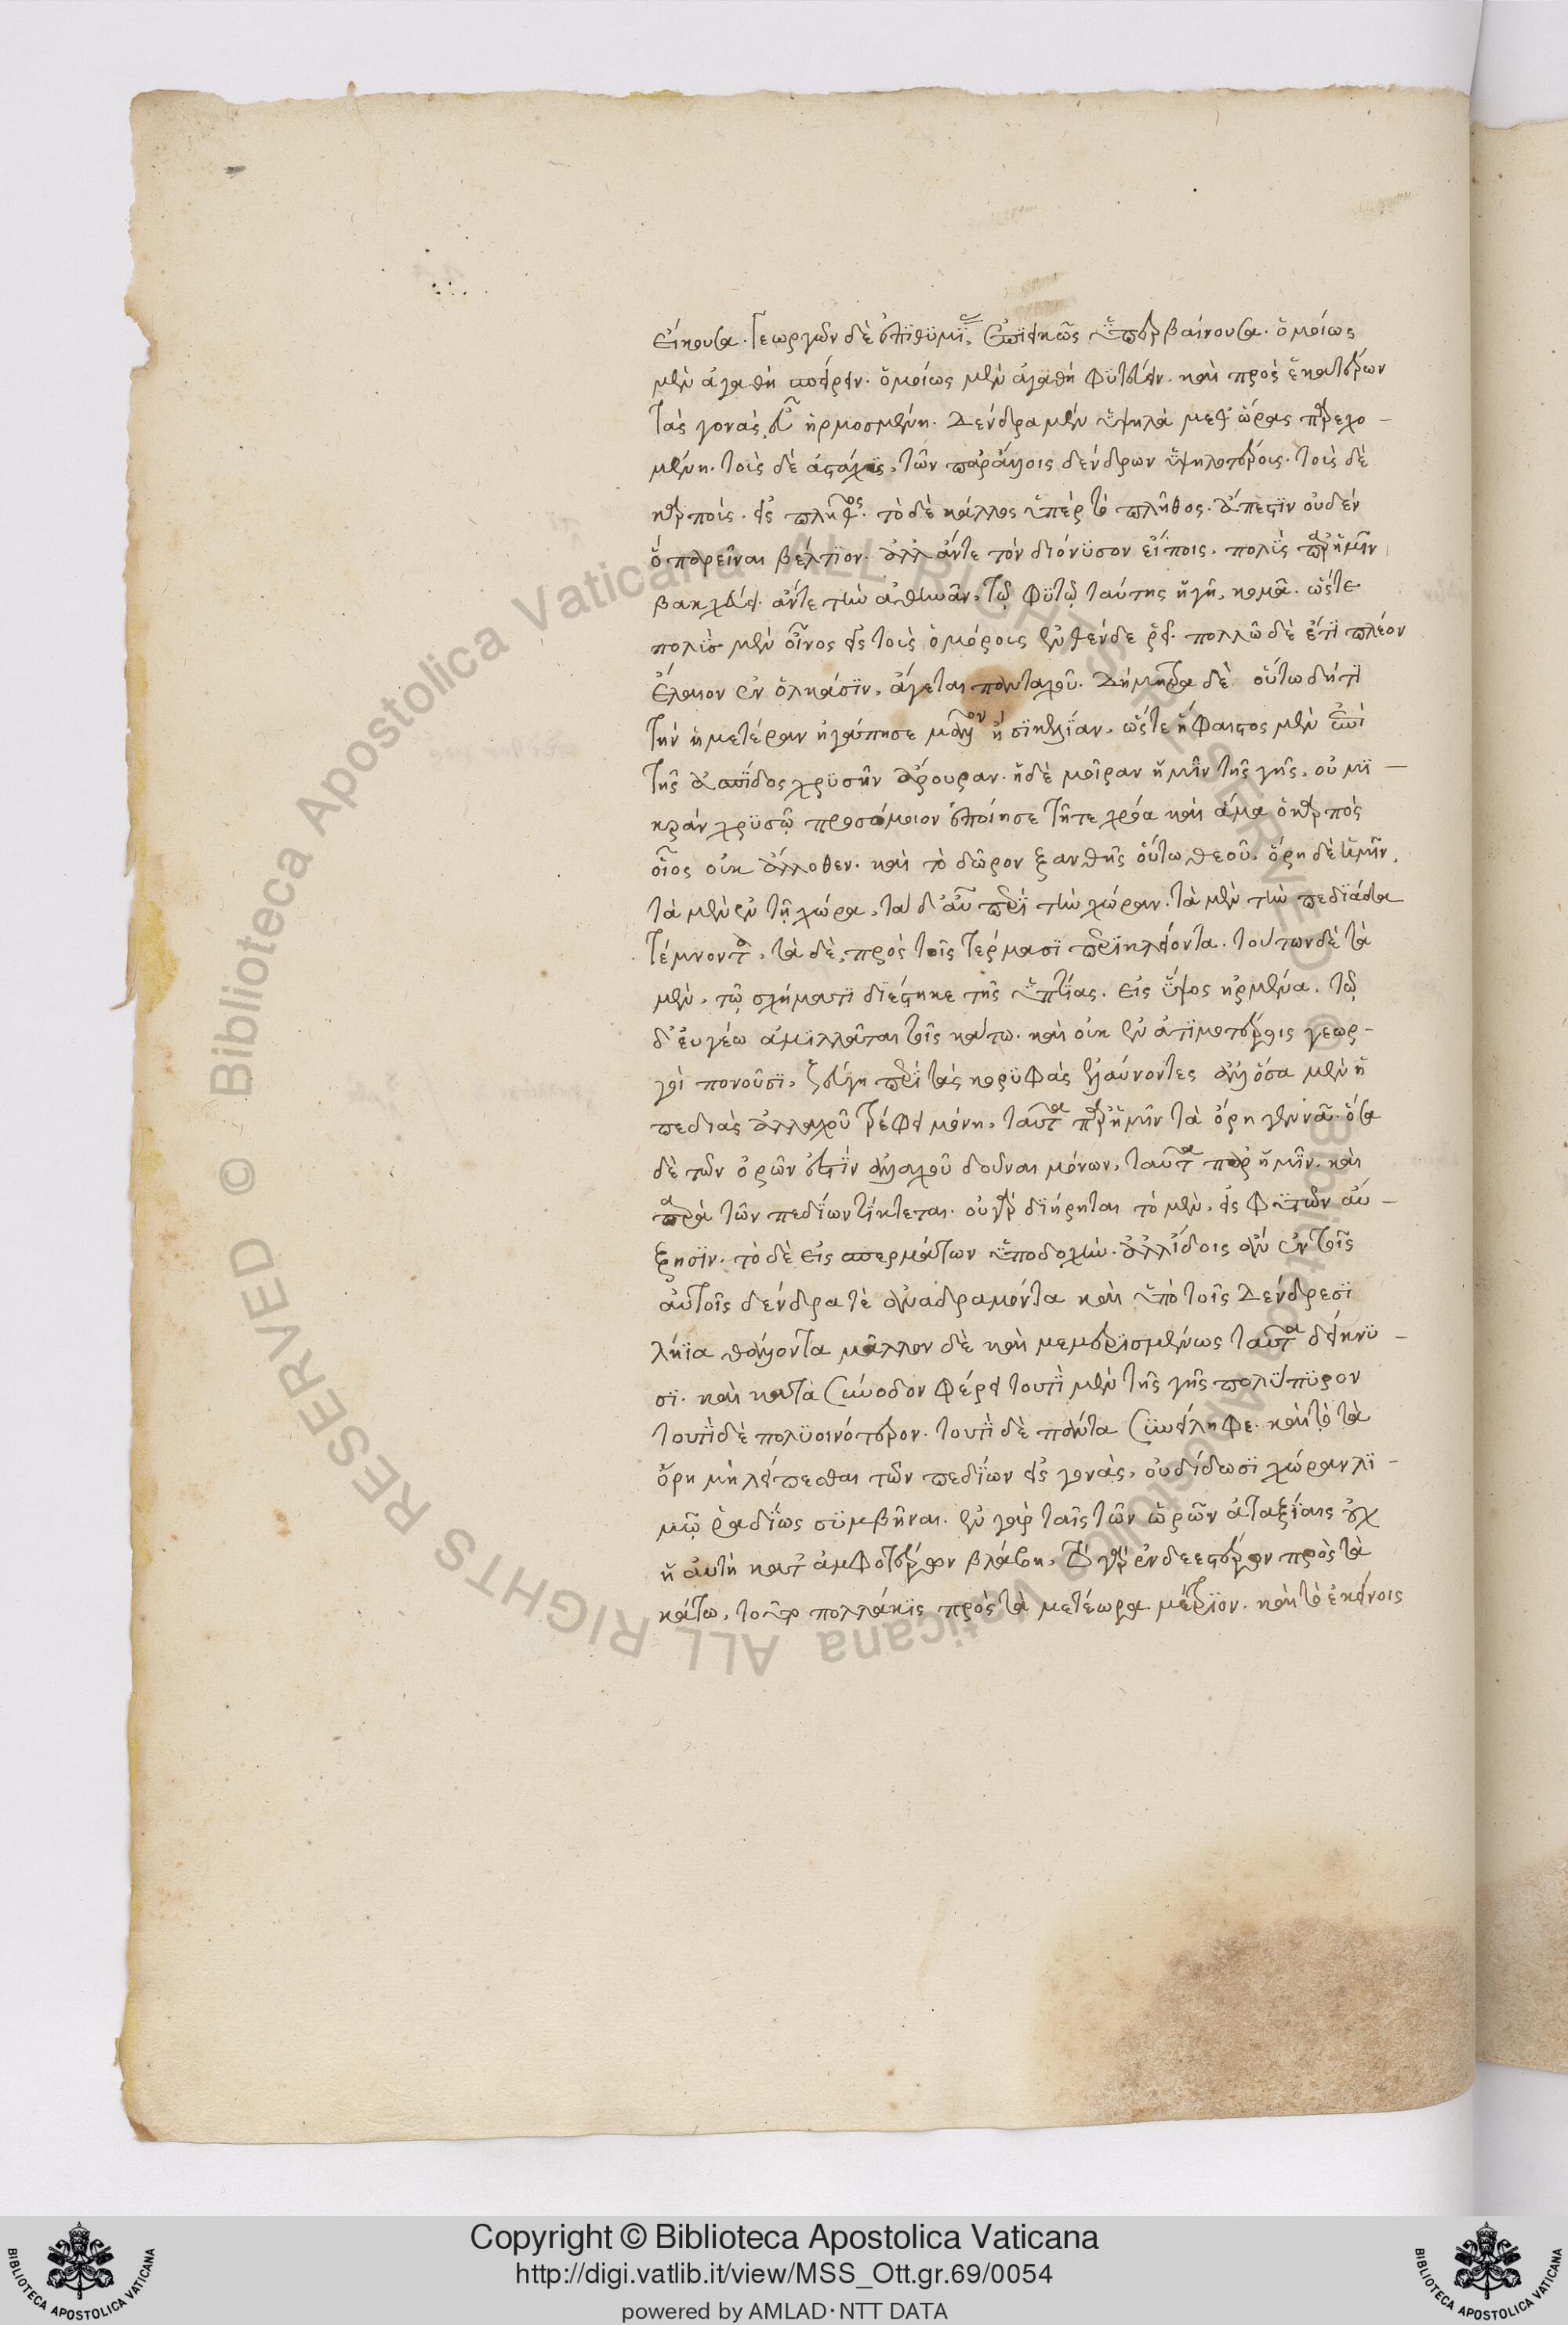 εἴκουσα. Γεωργῶν δὲ ἐπιθυμίας, ἐπιεικῶς ὑπερβαίνουσα. ὁμοίως
μὲν ἀγαθὴ σπείρειν. ὁμοίως μὲν ἀγαθὴ φυτεύειν. καὶ πρὸς ἑκατέρων
τὰς γονὰς, εὖ ἡρμοσμένη. Δένδρα μὲν ὑψηλὰ μεθ' ὥρας παρεχο-
μένη. τοῖς δὲ ἀστάχυς, τῶν παράλλοις δένδρων ὑψηλοτέροις. τοῖς δὲ
καρποῖς. εἰς πλῆθος. τὸ δὲ κάλλος ὑπὲρ τὸ πλῆθος. ἄπεστιν οὐδὲν
ὃ παρεῖναι βέλτιον. ἀλλ' ἄν τε τὸν διόνυσον εἴποις. πολὺς παρ' ἡμῖν
βακχεύει. ἄν τε τὴν ἀθηνᾶν, τῷ φυτῷ ταύτης ἡ γῆ, κομᾷ. ὥστε
πολὺς μὲν οἶνος εἰς τοῖς ὁμόροις ἐνθένδε ῥεῖ. πολλῷ δὲ ἔτι πλέον
ἔλαιον ἐν ὁλκάσιν, ἄγεται πανταχοῦ. Δήμητρα δὲ οὕτω δή τι
τὴν ἡμετέραν ἠγάπησε μᾶλλον ἢ σικελίαν. ὥστε ἥφαιστος μὲν ἐπὶ
τῆς ἀσπίδος χρυσῆν ἄρουραν. ἡ δὲ μοῖραν ἡμῖν τῆς γῆς, οὐ μι-
κρὰν χρυσῷ προσόμοιον ἐποίησε τῇ τε χρόα καὶ ἅμα ὁ καρπὸς
οἷος οὐκ ἄλλοθεν. καὶ τὸ δῶρον ξανθῆς ὄντω θεοῦ. ὄρη δὲ ἡμῖν,
τὰ μὲν ἐν τῇ χώρα, τὰ δ' αὖ περὶ τὴν χώραν. τὰ μὲν τὴν πεδιάδα
τέμνοντα, τὰ δὲ, πρὸς τοῖς τέρμασι περικλείοντα. τούτων δὲ τὰ
μὲν, τῷ σχήματι διέστηκε τῆς ὑπτίας. εἰς ὕψος ἠρμένα. τῷ
δ' εὐγέω ἁμιλλᾶται τοῖς κάτω. καὶ οὐκ ἐν ἀτιμοτέροις γεωρ-
γοὶ πονοῦσι, ζεύγη περὶ τὰς κορυφὰς ἐλαύνοντες ἀλλ' ὅσα μὲν ἡ
πεδιὰς ἀλλαχοῦ τρέφει μόνη, ταῦτα παρ' ἡμῖν τὰ ὄρη γεννᾶ. ὅσα
δὲ τῶν ὀρῶν ἐστὶν ἀλλαχοῦ δοῦναι μόνων, ταῦτα παρ' ἡμῖν. καὶ
παρὰ τῶν πεδίων τίκτεται. οὐ γὰρ διῄρηται τὸ μὲν, εἰς φυτῶν αὔ-
ξησιν. τὸ δὲ εἰς σπερμάτων ὑποδοχὴν. ἀλλ' ἴδοις ἂν ἐν τοῖς
αὐτοῖς δένδρα τὲ ἀναδραμόντα καὶ ὑπὸ τοῖς Δένδρεσι
λήϊα θάλλοντα μᾶλλον δὲ καὶ μεμερισμένως ταῦτα δείκνυ-
σι. καὶ κατὰ σύνοδον φέρει τουτὶ μὲν τῆς γῆς πολύπυρον
τουτὶ δὲ πολυοινότερον. τουτὶ δὲ πάντα συνείληφε. καὶ τὸ τὰ
ὄρη μὴ λείπεσθαι τῶν πεδίων εἰς γονὰς, οὐ δίδωσι χώραν λι-
μῷ ῥαδίως συμβῆναι. ἐν γὰρ ταῖς τῶν ὡρῶν ἀταξίαις οὐχ
ἡ αὐτὴ κατ' ἀμφοτέρων βλάβη. τό γὰρ ἐνδεέστερον πρὸς τὰ
κάτω, πολλάκις πρὸς τὰ μετέωρα μέτριον. καὶ τὸ ἐκείνοις
Copyright © Biblioteca Apostolica Vaticana
http://digi.vatlib.it/view/MSS_Ott.gr.69/0054
powered by AMLAD·NTT DATA
BIBLIOTECA APOSTOLICA VATICANA
BIBLIOTECA APOSTOLICA VATICANA
© Biblioteca Apostolica Vaticana ALL RIGHTS RESERVED
© Biblioteca Apostolica Vaticana ALL RIGHTS RESERVED